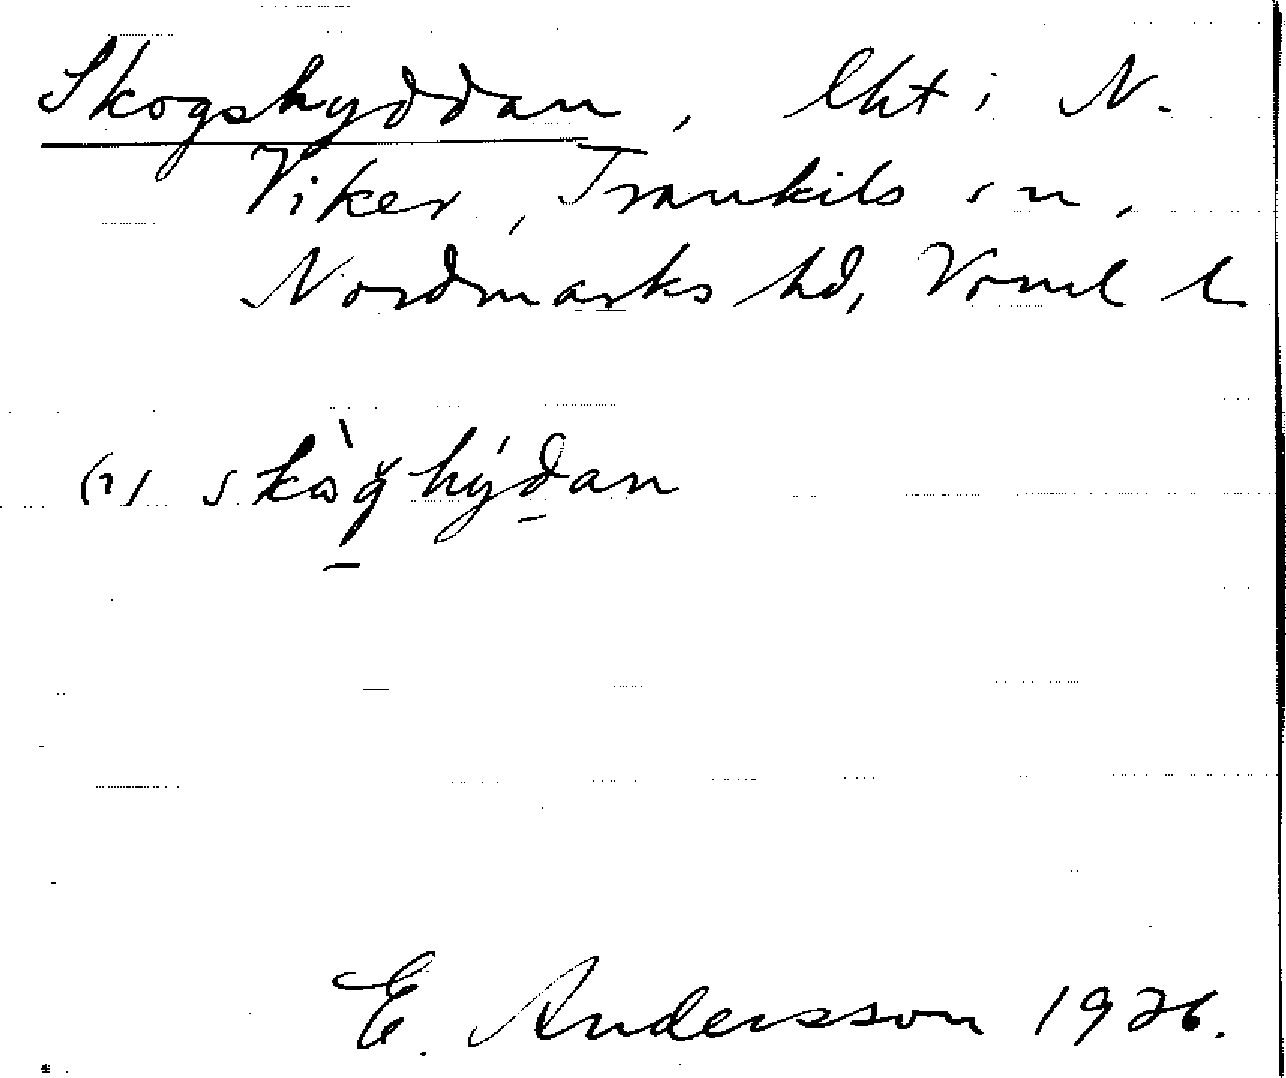 Skogshyddan, lht i N.
Viker, Trankils sn,
Nordmarks hd, Vrml l
(1) skò̱g hýḏan
E. Andersson 1926.